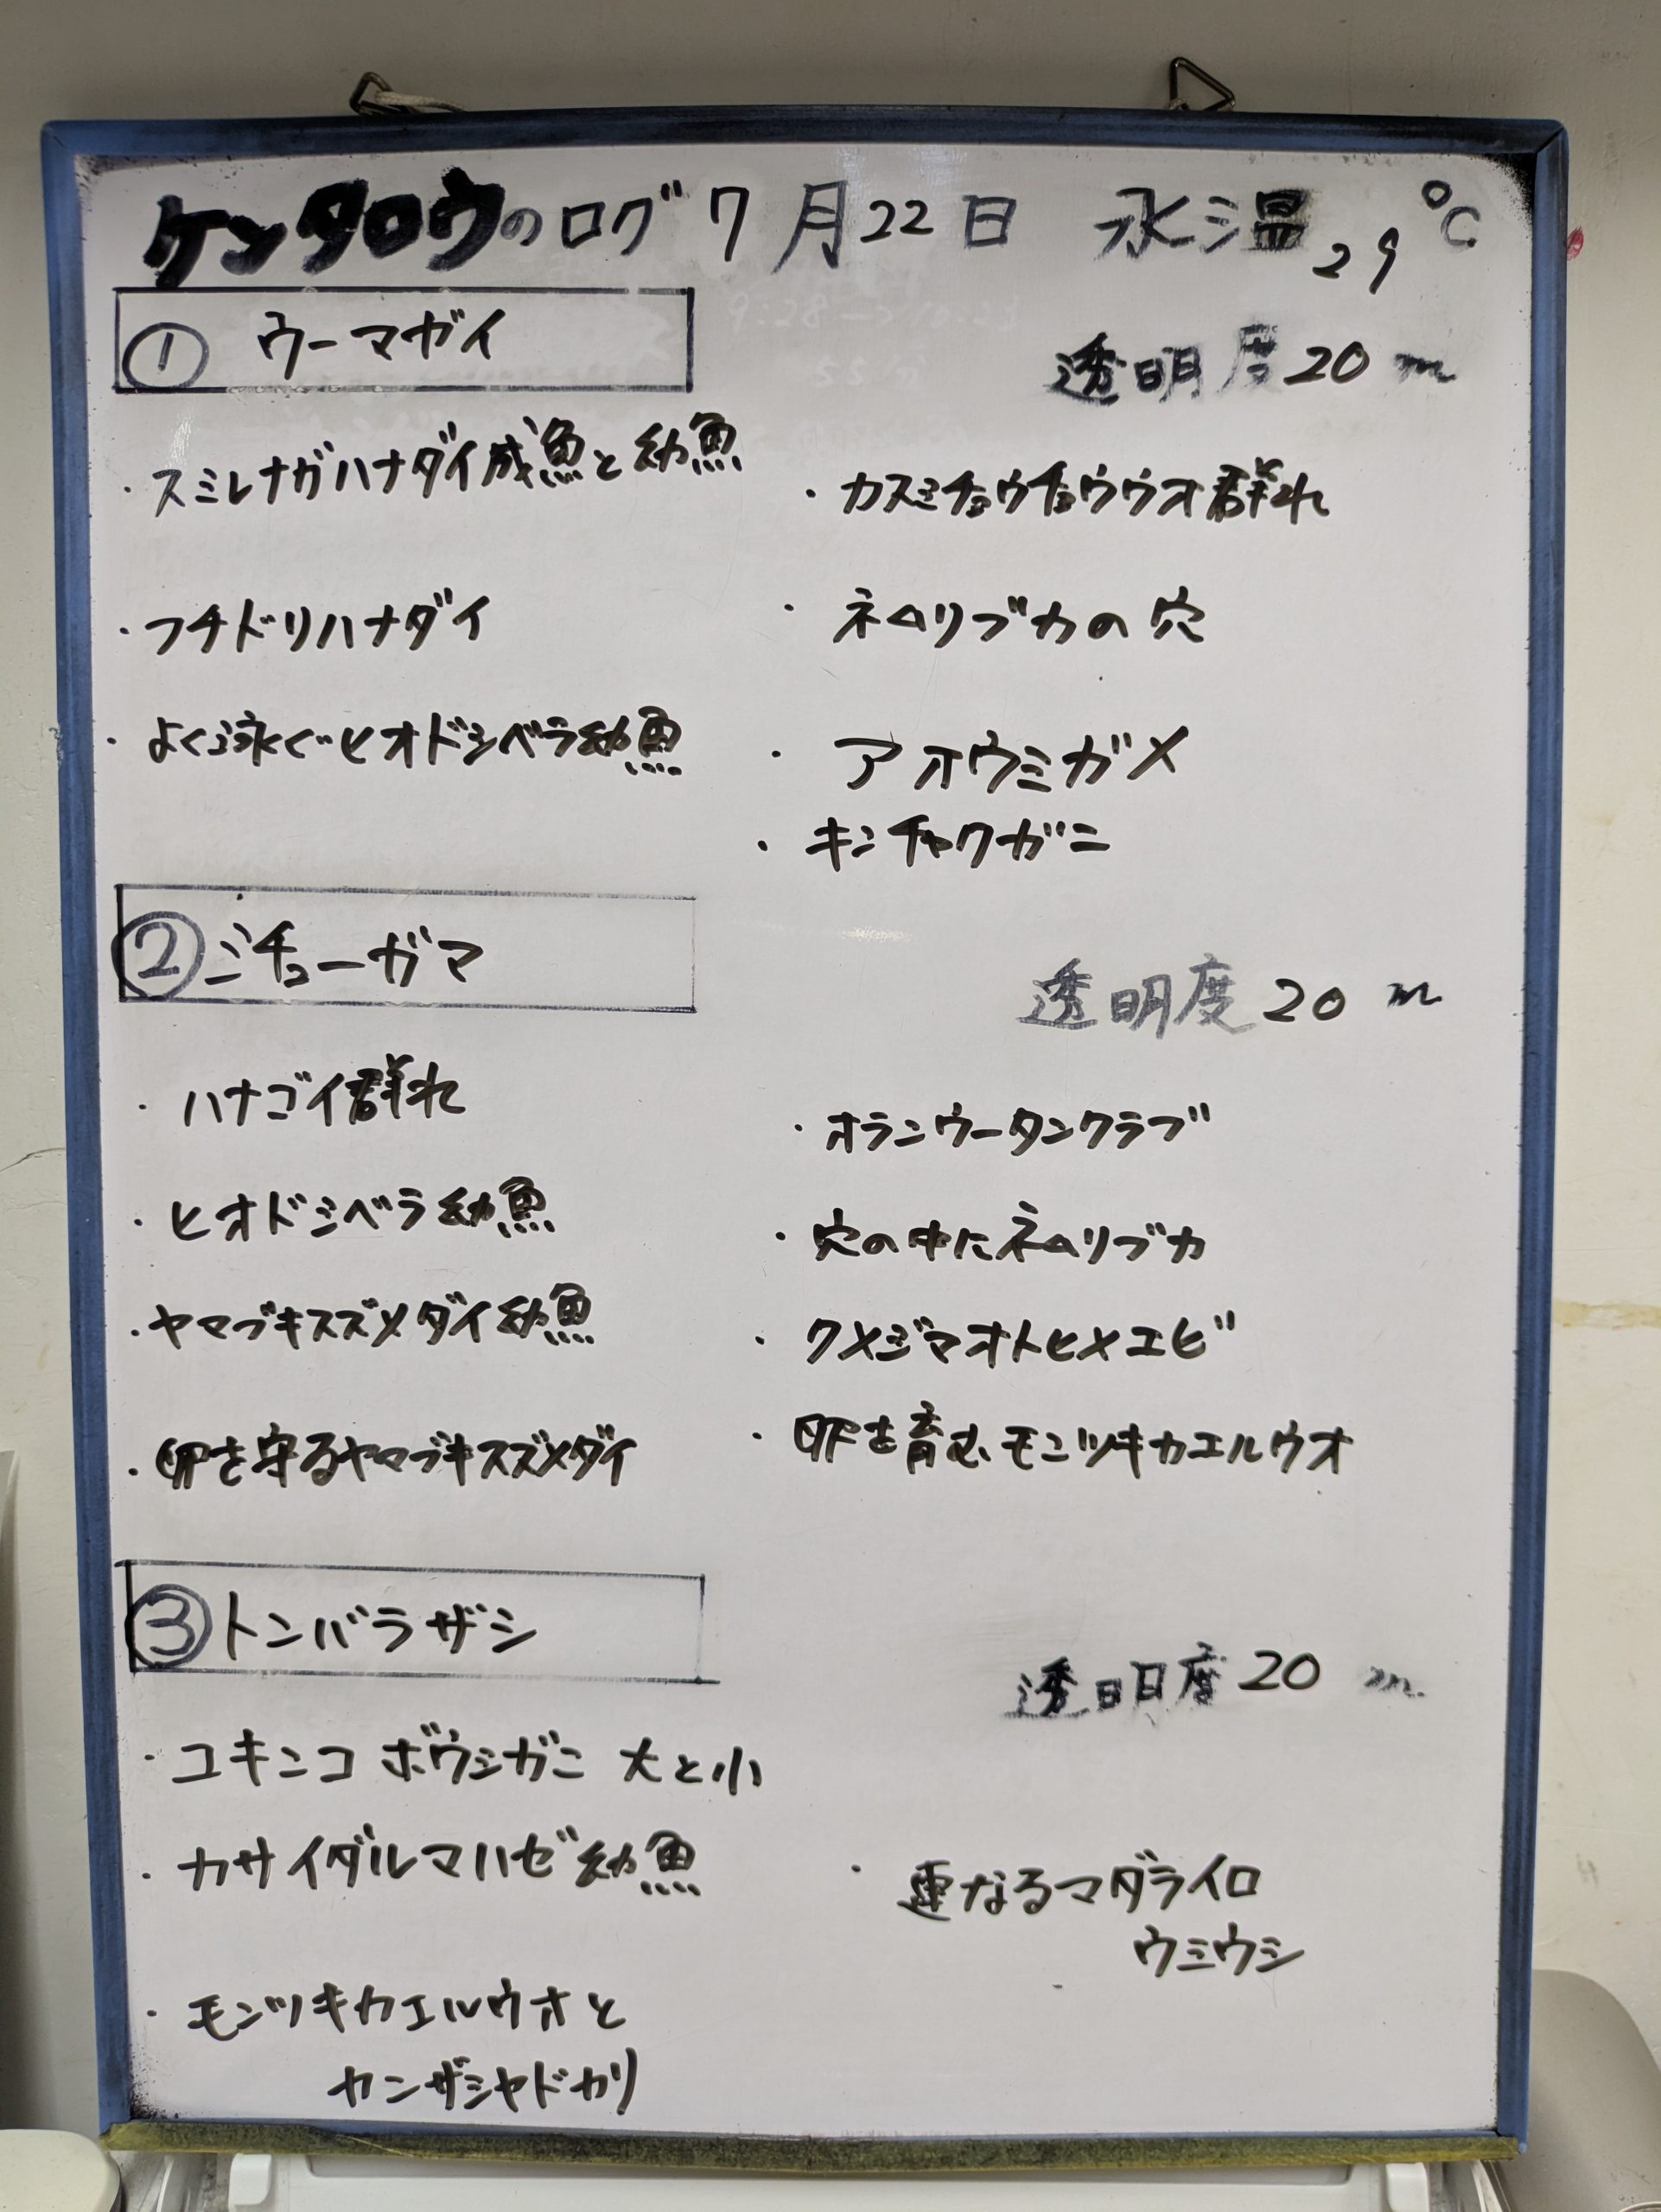 ケンタロウのログ 7月22日 水温29℃
① ウーマガイ
透明度20m
・スミレナガハナダイ成魚と幼魚
・フチドリハナダイ
・よく泳ぐヒオドシベラ幼魚
・カスミチョウチョウウオ群れ
・ネムリブカの穴
・アオウミガメ
・キンチャクガニ
② ミチューガマ
透明度20m
・ハナゴイ群れ
・ヒオドシベラ幼魚
・ヤマブキスズメダイ幼魚
・卵を守るヤマブキスズメダイ
・オランウータンクラブ
・穴の中にネムリブカ
・クメジマオトヒメエビ
・卵を育むモンツキカエルウオ
③ トンバラザシ
透明度20m
・ユキンコボウシガニ 大と小
・カサイダルマハゼ幼魚
・モンツキカエルウオと
カンザシヤドカリ
・重なるマダライロ
ウミウシ